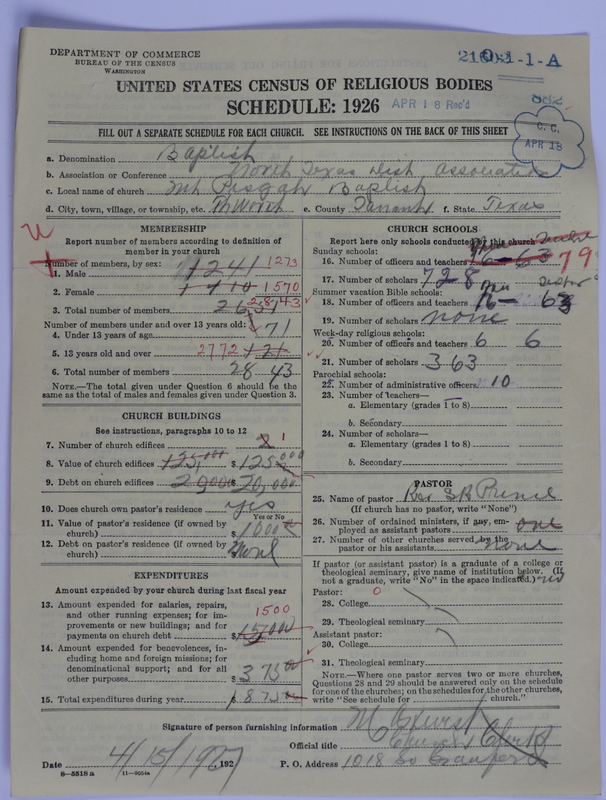 DEPARTMENT OF COMMERCE
BUREAU OF THE CENSUS
WASHINGTON
1-1-A
UNITED STATES CENSUS OF RELIGIOUS BODIES
SCHEDULE: 1926 APR 18 Rec'd
FILL OUT A SEPARATE SCHEDULE FOR EACH CHURCH. SEE INSTRUCTIONS ON THE BACK OF THIS SHEET
C. C.
APR 18
a. Denomination Baptist
b. Association or Conference North Texas Dist Association
c. Local name of church Mt Pisgah Baptist
d. City, town, village, or township, etc. Ft Worth e. County Tarrant f. State Texas
MEMBERSHIP
Report number of members according to definition of member in your church
Number of members, by sex:
1. Male 1241 1273
2. Female 1410 1570
3. Total number of members 2651 2843
Number of members under and over 13 years old:
4. Under 13 years of age 71
5. 13 years old and over 2772
6. Total number of members 2843
NOTE.—The total given under Question 6 should be the same as the total of males and females given under Question 3.
CHURCH BUILDINGS
See instructions, paragraphs 10 to 12
7. Number of church edifices 1
8. Value of church edifices 125,000 $ 125000
9. Debt on church edifices 20,000 $ 20,000
10. Does church own pastor's residence yes
Yes or No
11. Value of pastor's residence (if owned by church) $ 1000
12. Debt on pastor's residence (if owned by church) None
EXPENDITURES
Amount expended by your church during last fiscal year
13. Amount expended for salaries, repairs, and other running expenses; for improvements or new buildings; and for payments on church debt $ 1500
14. Amount expended for benevolences, including home and foreign missions; for denominational support; and for all other purposes $ 375
15. Total expenditures during year $ 1875
CHURCH SCHOOLS
Report here only schools conducted by this church
Sunday schools:
16. Number of officers and teachers 16-63 79
17. Number of scholars 728
Summer vacation Bible schools:
18. Number of officers and teachers 16- 63
19. Number of scholars none
Week-day religious schools:
20. Number of officers and teachers 6 6
21. Number of scholars 363
Parochial schools:
22. Number of administrative officers 10
23. Number of teachers—
a. Elementary (grades 1 to 8)
b. Secondary
24. Number of scholars—
a. Elementary (grades 1 to 8)
b. Secondary
PASTOR
25. Name of pastor Rev. S R Prince
(If church has no pastor, write "None")
26. Number of ordained ministers, if any, employed as assistant pastors one
27. Number of other churches served by the pastor or his assistants none
If pastor (or assistant pastor) is a graduate of a college or theological seminary, give name of institution below. (If not a graduate, write "No" in the space indicated.) no
Pastor: 0
28. College
29. Theological seminary
Assistant pastor:
30. College
31. Theological seminary
NOTE.—Where one pastor serves two or more churches, Questions 28 and 29 should be answered only on the schedule for one of the churches; on the schedules for the other churches, write "See schedule for church."
Signature of person furnishing information
Official title Church Clerk
Date 4/15/1927, 192 P. O. Address 1018 So
8-5518 a